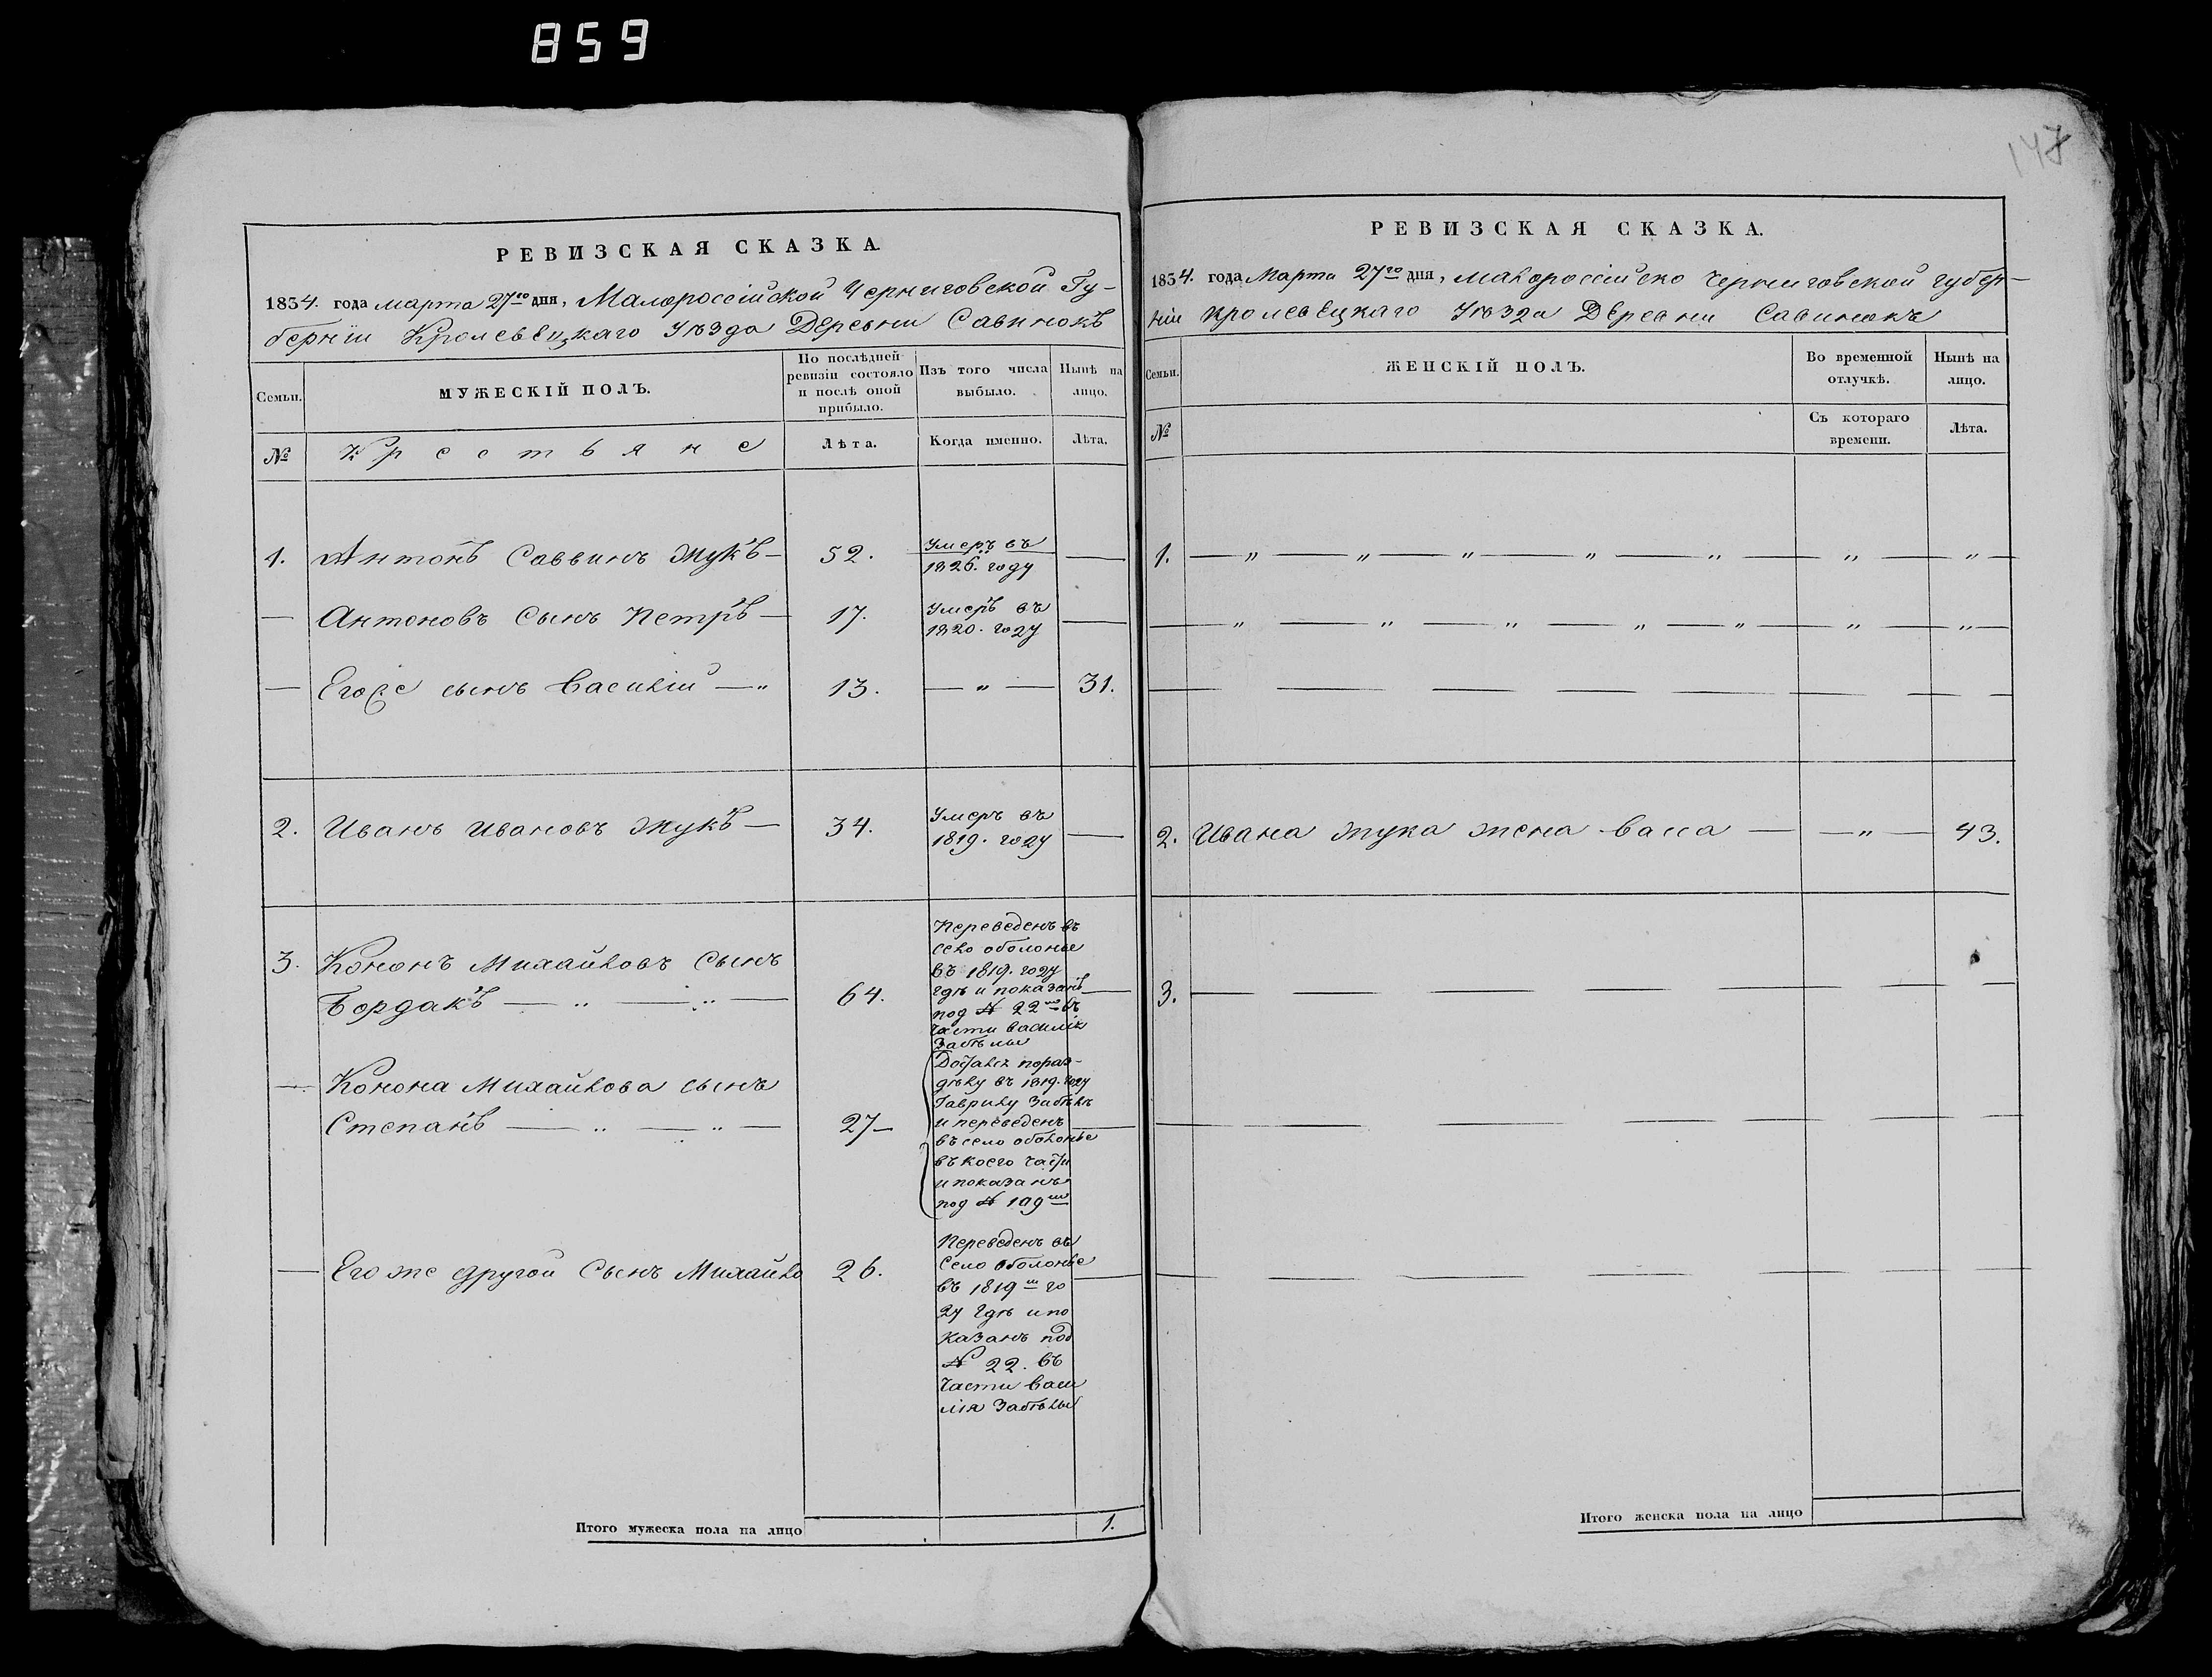 859
147
РЕВИЗСКАЯ СКАЗКА
1834. года марта 27го дня, Малороссійской Черниговской Гу-
берніи Кролевецкаго Уѣзда Деревни Савинокъ
Семьи.
МУЖЕСКІЙ ПОЛЪ.
По послѣдней
ревизіи состояло
и послѣ оной
прибыло.
Изъ того числа
выбыло.
Нынѣ на
лицо.
№
Крестьяне
Лѣта.
Когда именно.
Лѣта.
1. Антонъ Саввинъ Жукъ — 52. Умеръ въ
1826. году
— Антоновъ Сынъ Петръ — 17. Умеръ въ
1820. году
— Егоже сынъ Василій — „ 13. — „ — 31.
2. Иванъ Ивановъ Жукъ — 34. Умеръ въ
1819. году
3. Кононъ Михайловъ Сынъ
Бордакъ — „ — „ — 64.
Переведенъ въ
село оболонье
въ 1819. году
гдѣ и показанъ
под № 22мъ въ
части Василія
Забѣлы
— Конона Михайлова сынъ
Степанъ — „ — „ — 27—
Досталсь пораз-
дѣлу въ 1819. году
Гаврилу Забѣлѣ
и переведенъ
въ село оболонье
въ коего части
и показанъ
под № 109мъ
— Его же другой Сынъ Михайло 26.
Переведенъ въ
Село оболонье
въ 1819м го
ду гдѣ и по
казанъ под
№ 22. въ
части Васи
лія Забѣлы
Итого мужеска пола на лицо 1.
РЕВИЗСКАЯ СКАЗКА.
1834. года Марта 27го дня, малороссійско Черниговской губер-
ніи Кролевецкаго Уѣзда Деревни Савинокъ
Семьи.
ЖЕНСКІЙ ПОЛЪ.
Во временной
отлучкѣ.
Нынѣ на
лицо.
№
Съ котораго
времени.
Лѣта.
1. — „ — „ — „ — „ — „ — „ — „ —
— „ — „ — „ — „ — „ — „ — „ —
2. Ивана Жука жена Васса — — „ — 43.
3. — — — — — —
Итого женска пола на лицо